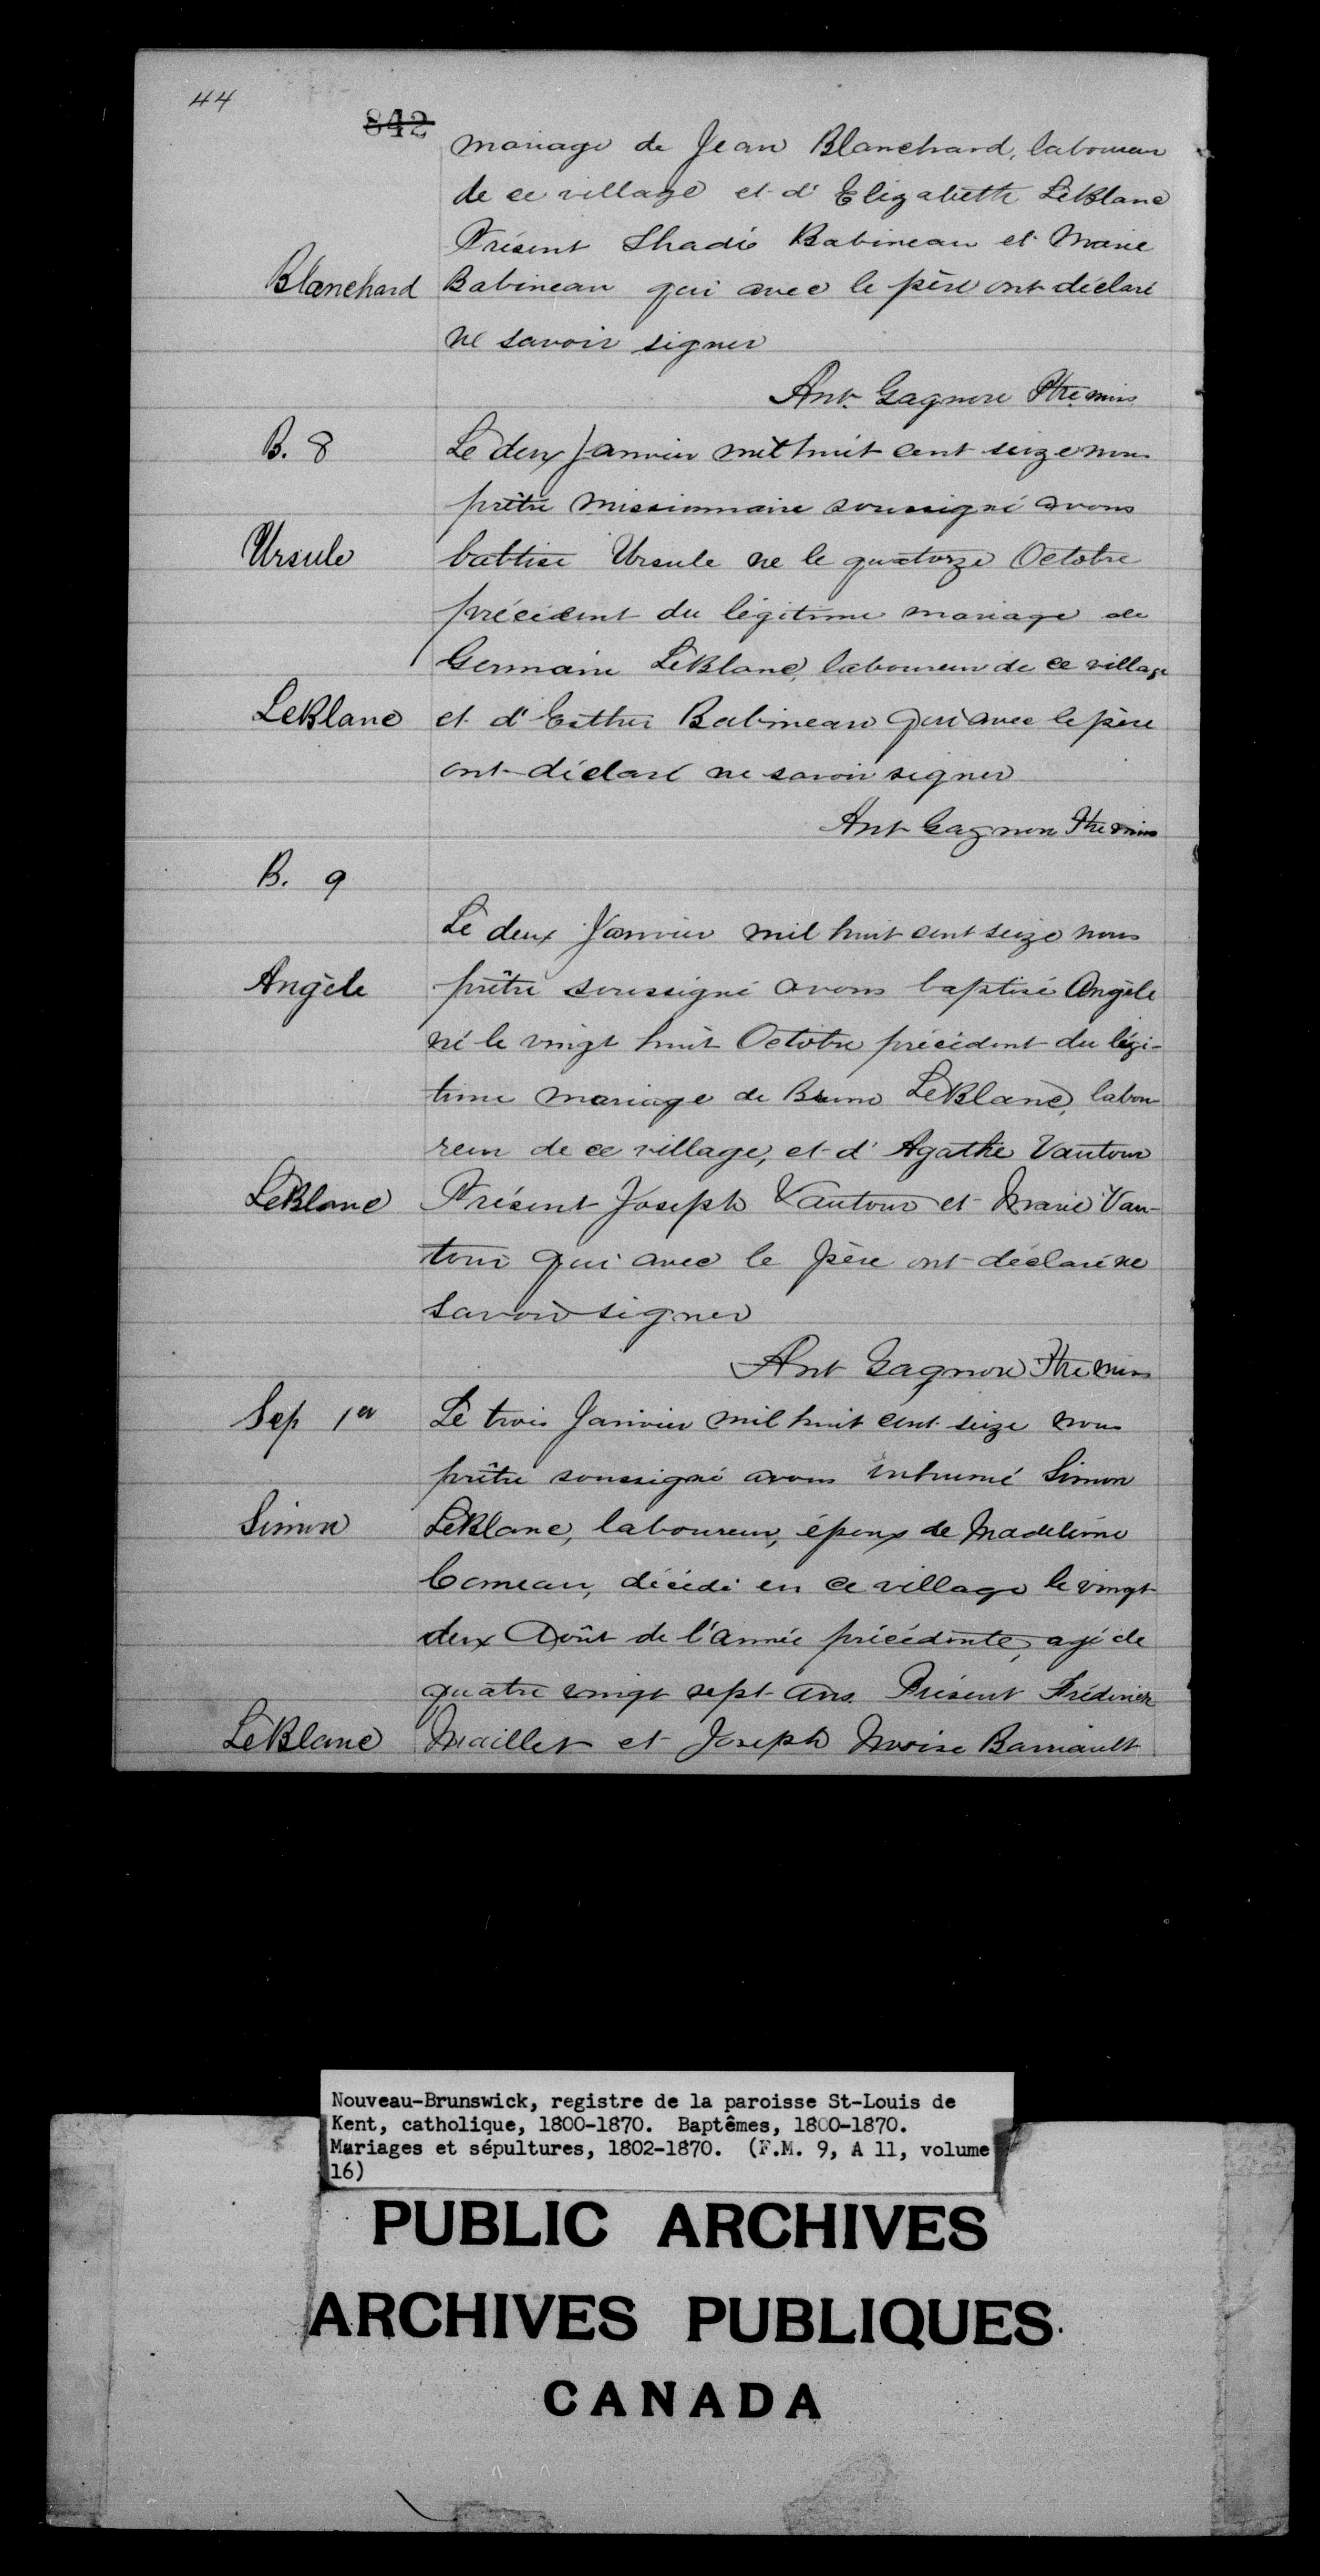 44
842
mariage de Jean Blanchard, laboureur
de ce village et d' Elizabeth LeBlanc
Présent Thadé Babineau et Marie
Blanchard Babineau qui avec le père ont déclaré
ne savoir signer
Ant. Gagnon Ptre miss
B. 8 Le deux Janvier mil huit cent seize nous
prêtre missionnaire soussigné avons
Ursule battise Ursule ne le quatorze Octobre
précédent du légitime mariage de
Germain LeBlanc, laboureur de ce village
LeBlanc et d' Esther Babineau qui avec le père
ont déclaré ne savoir signer
Ant Gagnon Ptre miss
B. 9
Le deux Janvier mil huit cent seize nous
Angèle prêtre soussigné avons baptisé Angèle
né le vingt huit Octobre précédent du légi-
time mariage de Bruno LeBlanc, labou-
reur de ce village, et d' Agathe Vautour
LeBlanc Présent Joseph Vautour et Marie Vau-
tour qui avec le père ont déclaré ne
savoir signer
Ant Gagnon Ptre miss
Sep 1er Le trois Janvier mil huit cent seize nous
prêtre soussigné avons inhumé Simon
Simon LeBlanc, laboureur, époux de Madeleine
Comeau, décédé en ce village le vingt
deux Août de l'année précédente, agé de
quatre vingt sept ans. Présent Fréderick
LeBlanc Maillet et Joseph Moise Barriault
Nouveau-Brunswick, registre de la paroisse St-Louis de
Kent, catholique, 1800-1870. Baptêmes, 1800-1870.
Mariages et sépultures, 1802-1870. (F.M. 9, A 11, volume
16)
PUBLIC ARCHIVES
ARCHIVES PUBLIQUES
CANADA